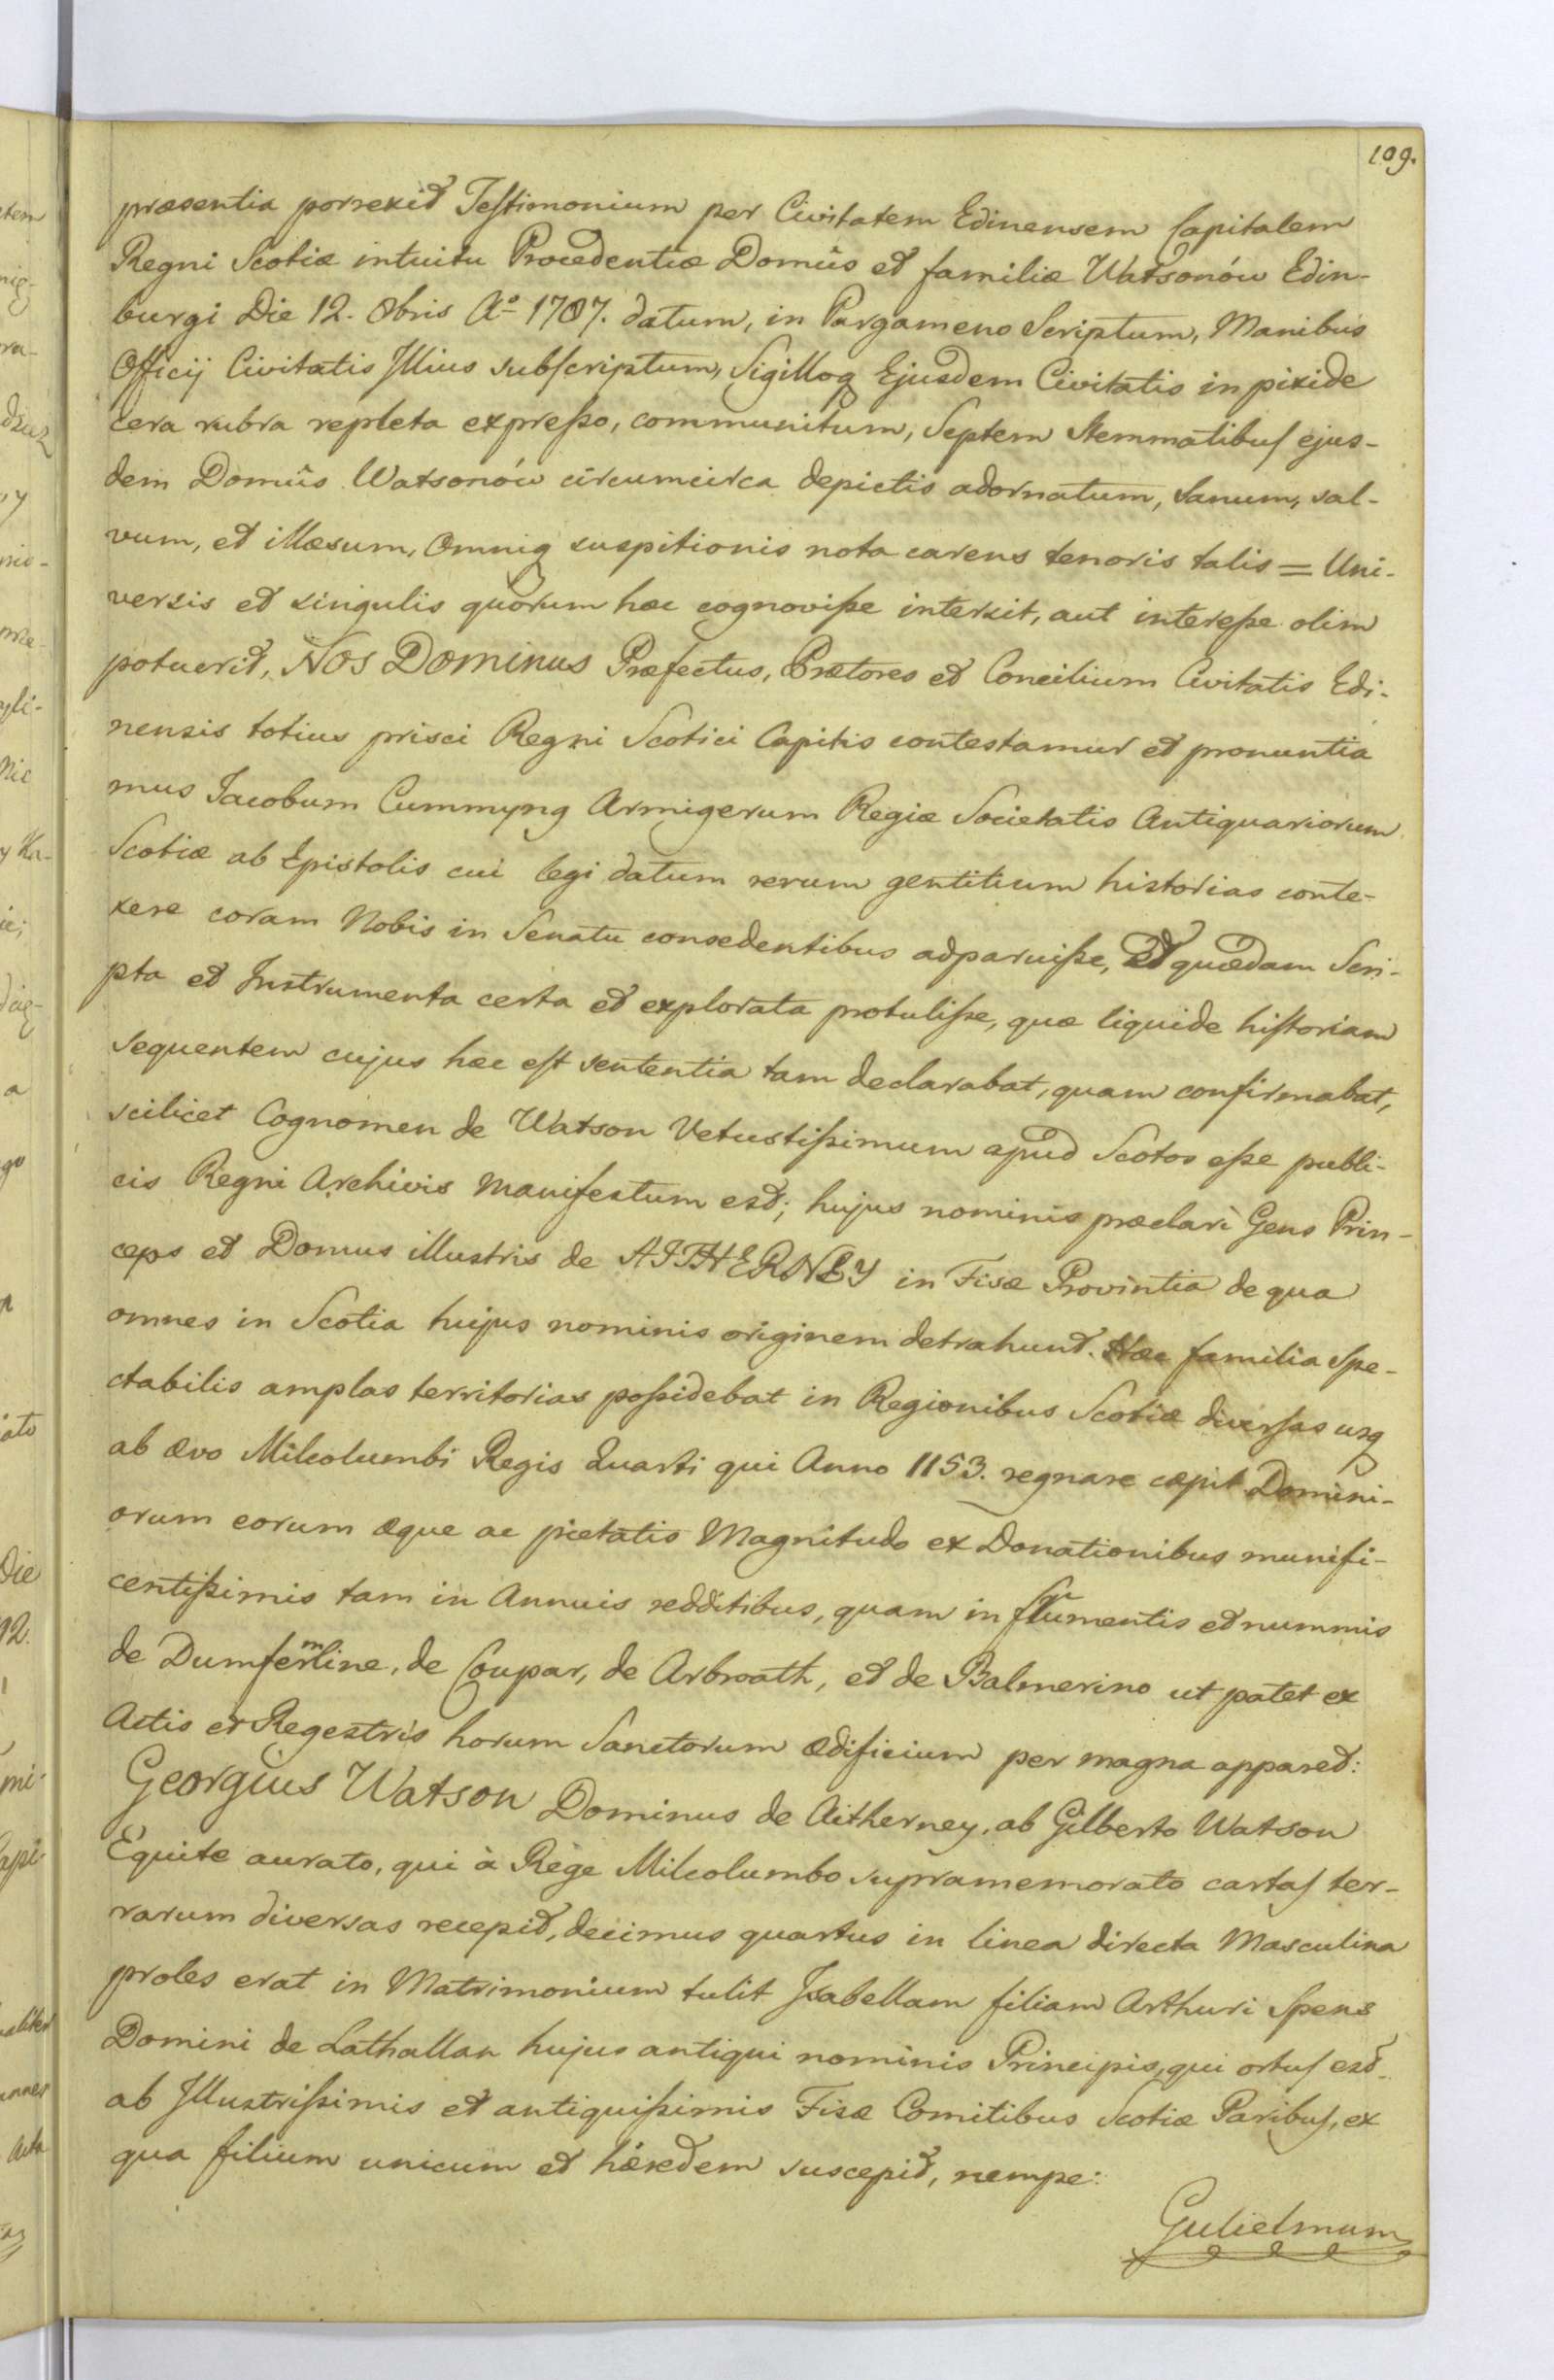 109.
præsentia porrexit Testimonium per Civitatem Edinensem Capitalem
Regni Scotiæ intuitu Procedentiæ Domûs et familiæ Watsonów Edin-
burgi Die 12. 8bris Aº 1787. datum, in Pargameno Scriptum, Manibus
Officij Civitatis Illius subscriptum, Sigilloq Ejusdem Civitatis in pixide
cera rubra repleta expresso, communitum, Septem Stemmatibus ejus-
dem Domûs Watsonów circumcirca depictis adornatum, sanum, sal-
vum, et illæsum, Omniq suspitionis nota carens tenoris talis = Uni-
versis et singulis quorum hæc cognovisse intersit, aut interesse olim
potuerit, Nos Dominus Præfectus, Prætores et Concilium Civitatis Edi-
nensis totius prisci Regni Scotici Capitis contestamur et pronuntia
mus Jacobum Cummyng Armigerum Regiæ Societatis Antiquariorum
Scotiæ ab Epistolis cui legi datum rerum gentitium historias conte-
xere coram Nobis in Senatu consedentibus adparuisse, Et quædam Scri-
pta et Instrumenta certa et explorata protulisse, quæ liquide historiam
sequentem cujus hæc est sententia tam declarabat, quam confirmabat,
scilicet Cognomen de Watson Vetustissimum apud Scotos esse publi-
cis Regni Archivis Manifestum est; hujus nominis præclari Gens Prin-
ceps et Domus illustris de AITHERNEY in Fisæ Provintia de qua
omnes in Scotia hujus nominis originem detrahunt. Hæc familia Spe-
ctabilis amplas territorias possidebat in Regionibus Scotiæ diversas usq
ab ævo Milcolumbi Regis Quarti qui Anno 1153. regnare cæpit Domini-
orum eorum æque ac pietatis Magnitudo ex Donationibus munifi-
centissimis tam in Annuis redditibus, quam in frumentis et nummis
de Dumfermline, de Coupar, de Arbroath, et de Balmerino ut patet ex
Actis et Regestris horum Sanctorum Ædificium per magna apparet:
Georgius Watson Dominus de Aitherney, ab Gilberto Watson
Equite aurato, qui à Rege Milcolumbo supramemorato cartas ter-
rarum diversas recepit, decimus quartus in linea directa Masculina
proles erat in Matrimonium tulit Isabellam filiam Arthuri Spens
Domini de Lathallan hujus antiqui nominis Principis, qui ortus est
ab Illustrissimis et antiquissimis Fisæ Comitibus Scotiæ Paribus, ex
qua filium unicum et hæredem suscepit, nempe:
Gulielmum